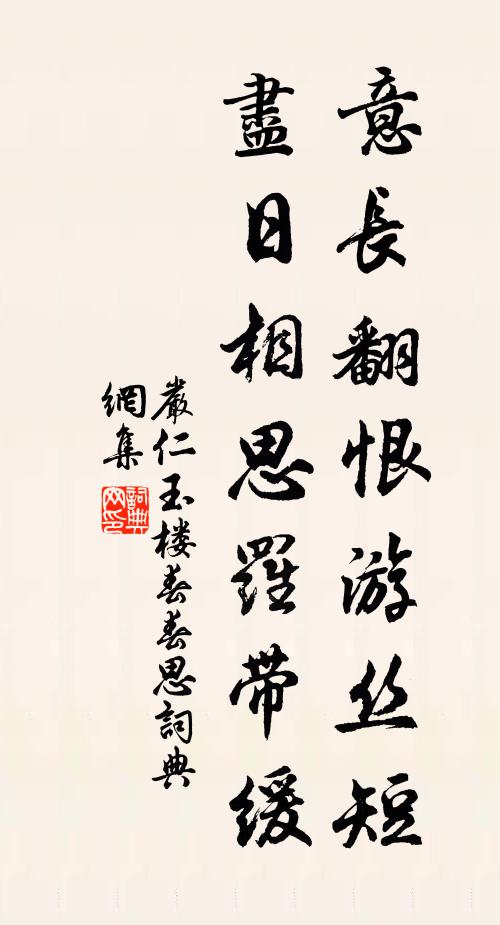 意長翻恨游丝短
盡日相思羅帶緩
嚴仁玉楼春春思詞典
網集
詞典
网印